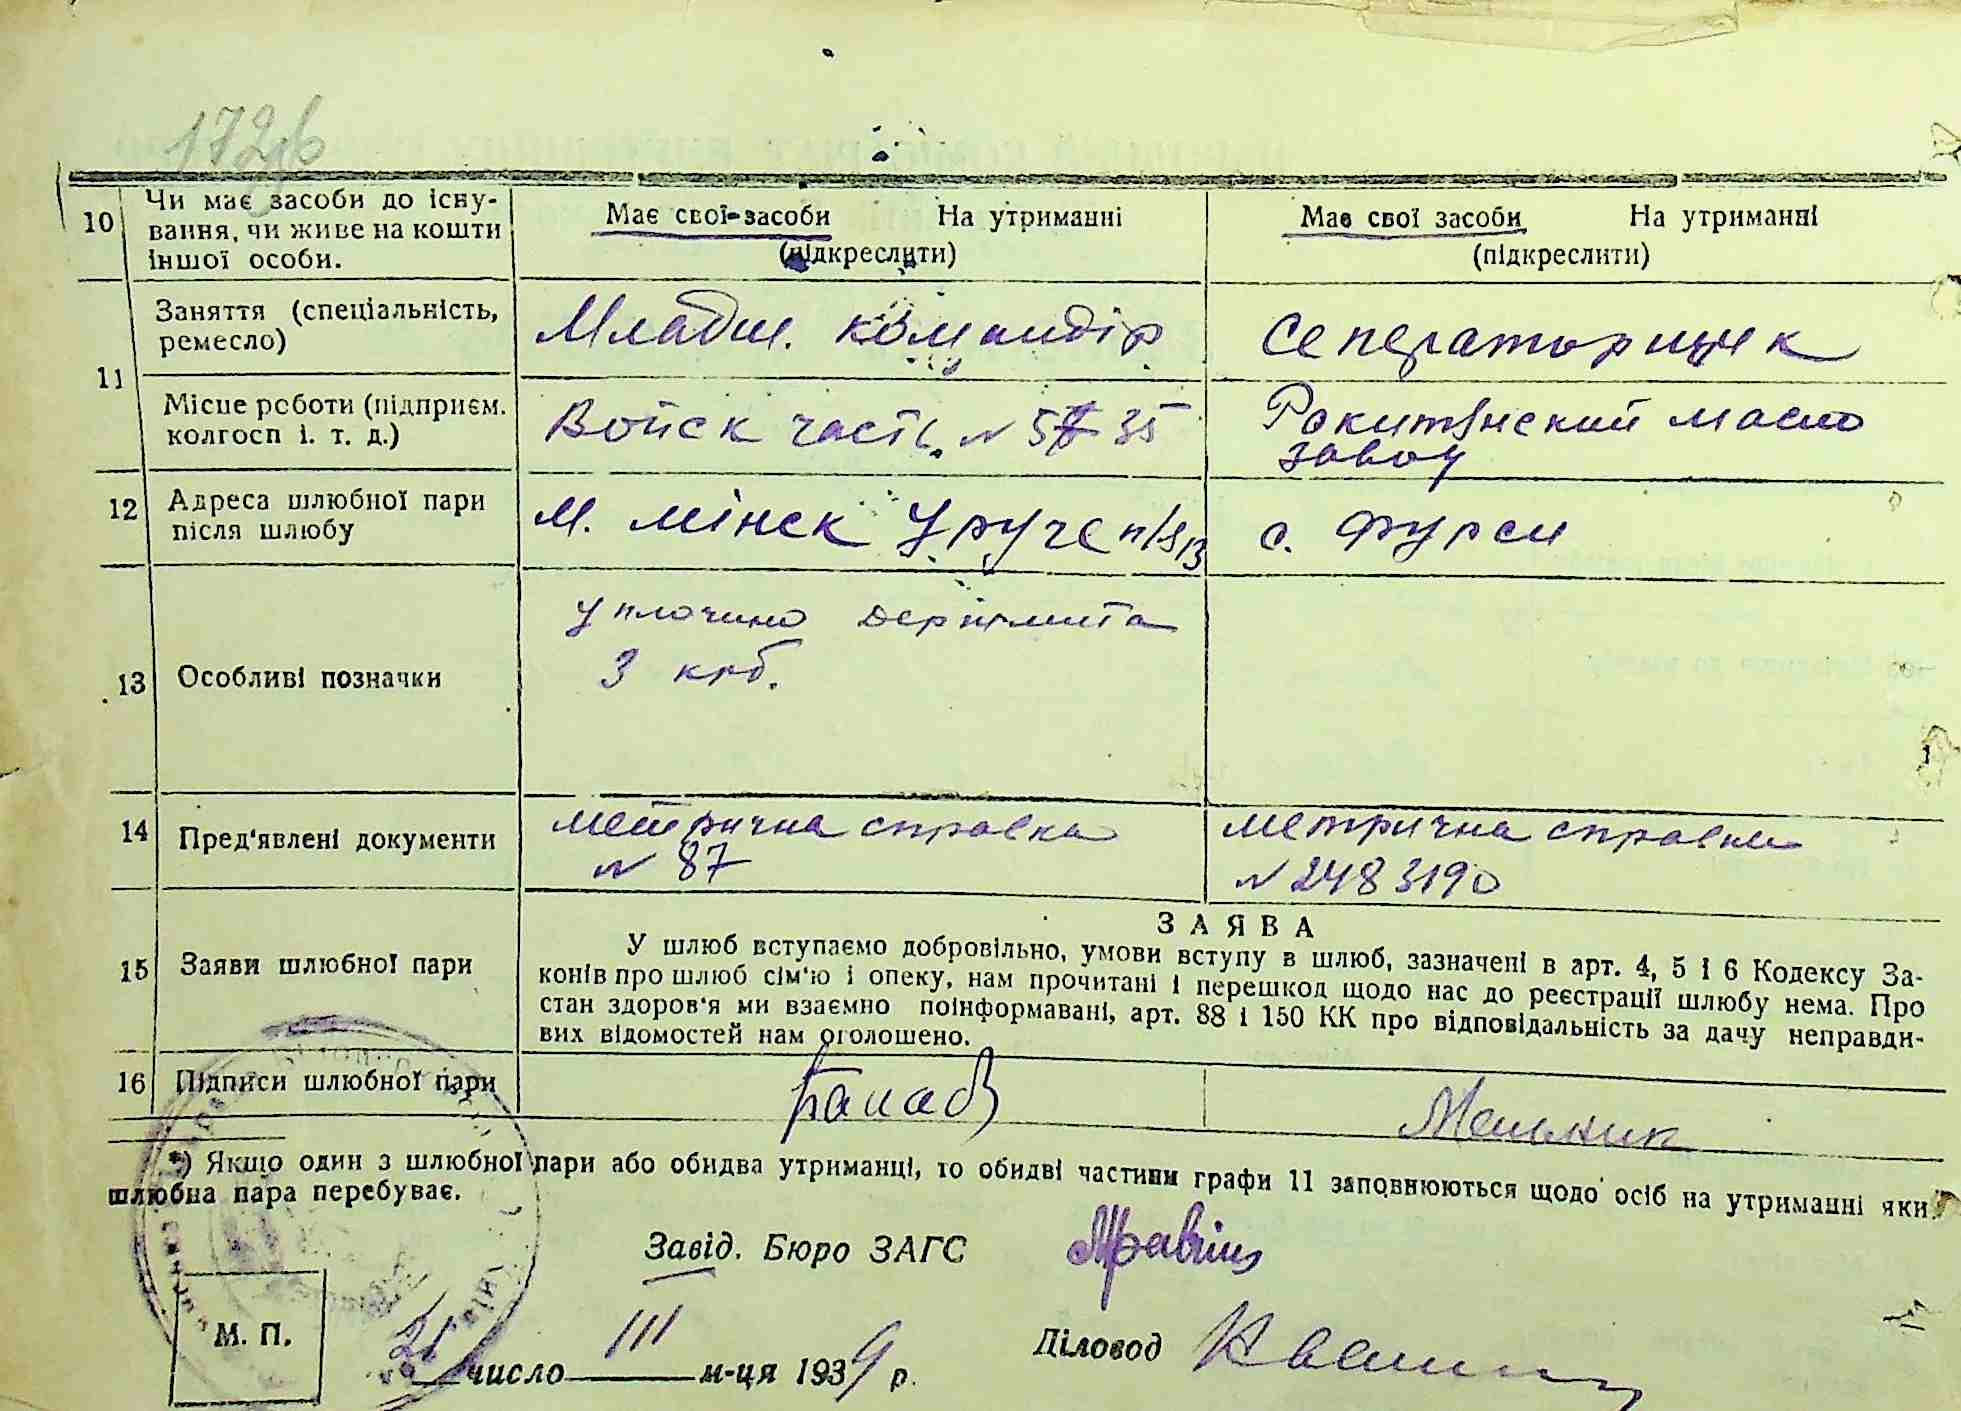 10 Чи має засоби до існу-
вання, чи живе на кошти
іншої особи.
Має свої засоби На утриманні
(підкреслити)
Має свої засоби На утриманні
(підкреслити)
11 Заняття (спеціальність,
ремесло)
Младш. командір
Сеператорщик
Місце роботи (підприєм.
колгосп і. т. д.)
Войск часть № 35
Рокитянский масло
завод
12 Адреса шлюбної пари
після шлюбу
м. Мінск Уруче п/я
с. Фурси
13 Особливі позначки
уплочино
3 крб.
14 Пред'явлені документи
метрична справка
№ 87
метрична справка
№ 2483190
15 Заяви шлюбної пари
ЗАЯВА
У шлюб вступаємо добровільно, умови вступу в шлюб, зазначені в арт. 4, 5 і 6 Кодексу За-
конів про шлюб сім'ю і опеку, нам прочитані і перешкод щодо нас до реєстрації шлюбу нема. Про
стан здоров'я ми взаємно поінформавані, арт. 88 і 150 КК про відповідальність за дачу неправди-
вих відомостей нам оголошено.
16 Підписи шлюбної пари
Мельник
*) Якщо один з шлюбної пари або обидва утриманці, то обидві частини графи 11 заповнюються щодо осіб на утриманні яки
шлюбна пара перебуває.
Завід. Бюро ЗАГС
М. П.
число III м-ця 1939 р.
Діловод